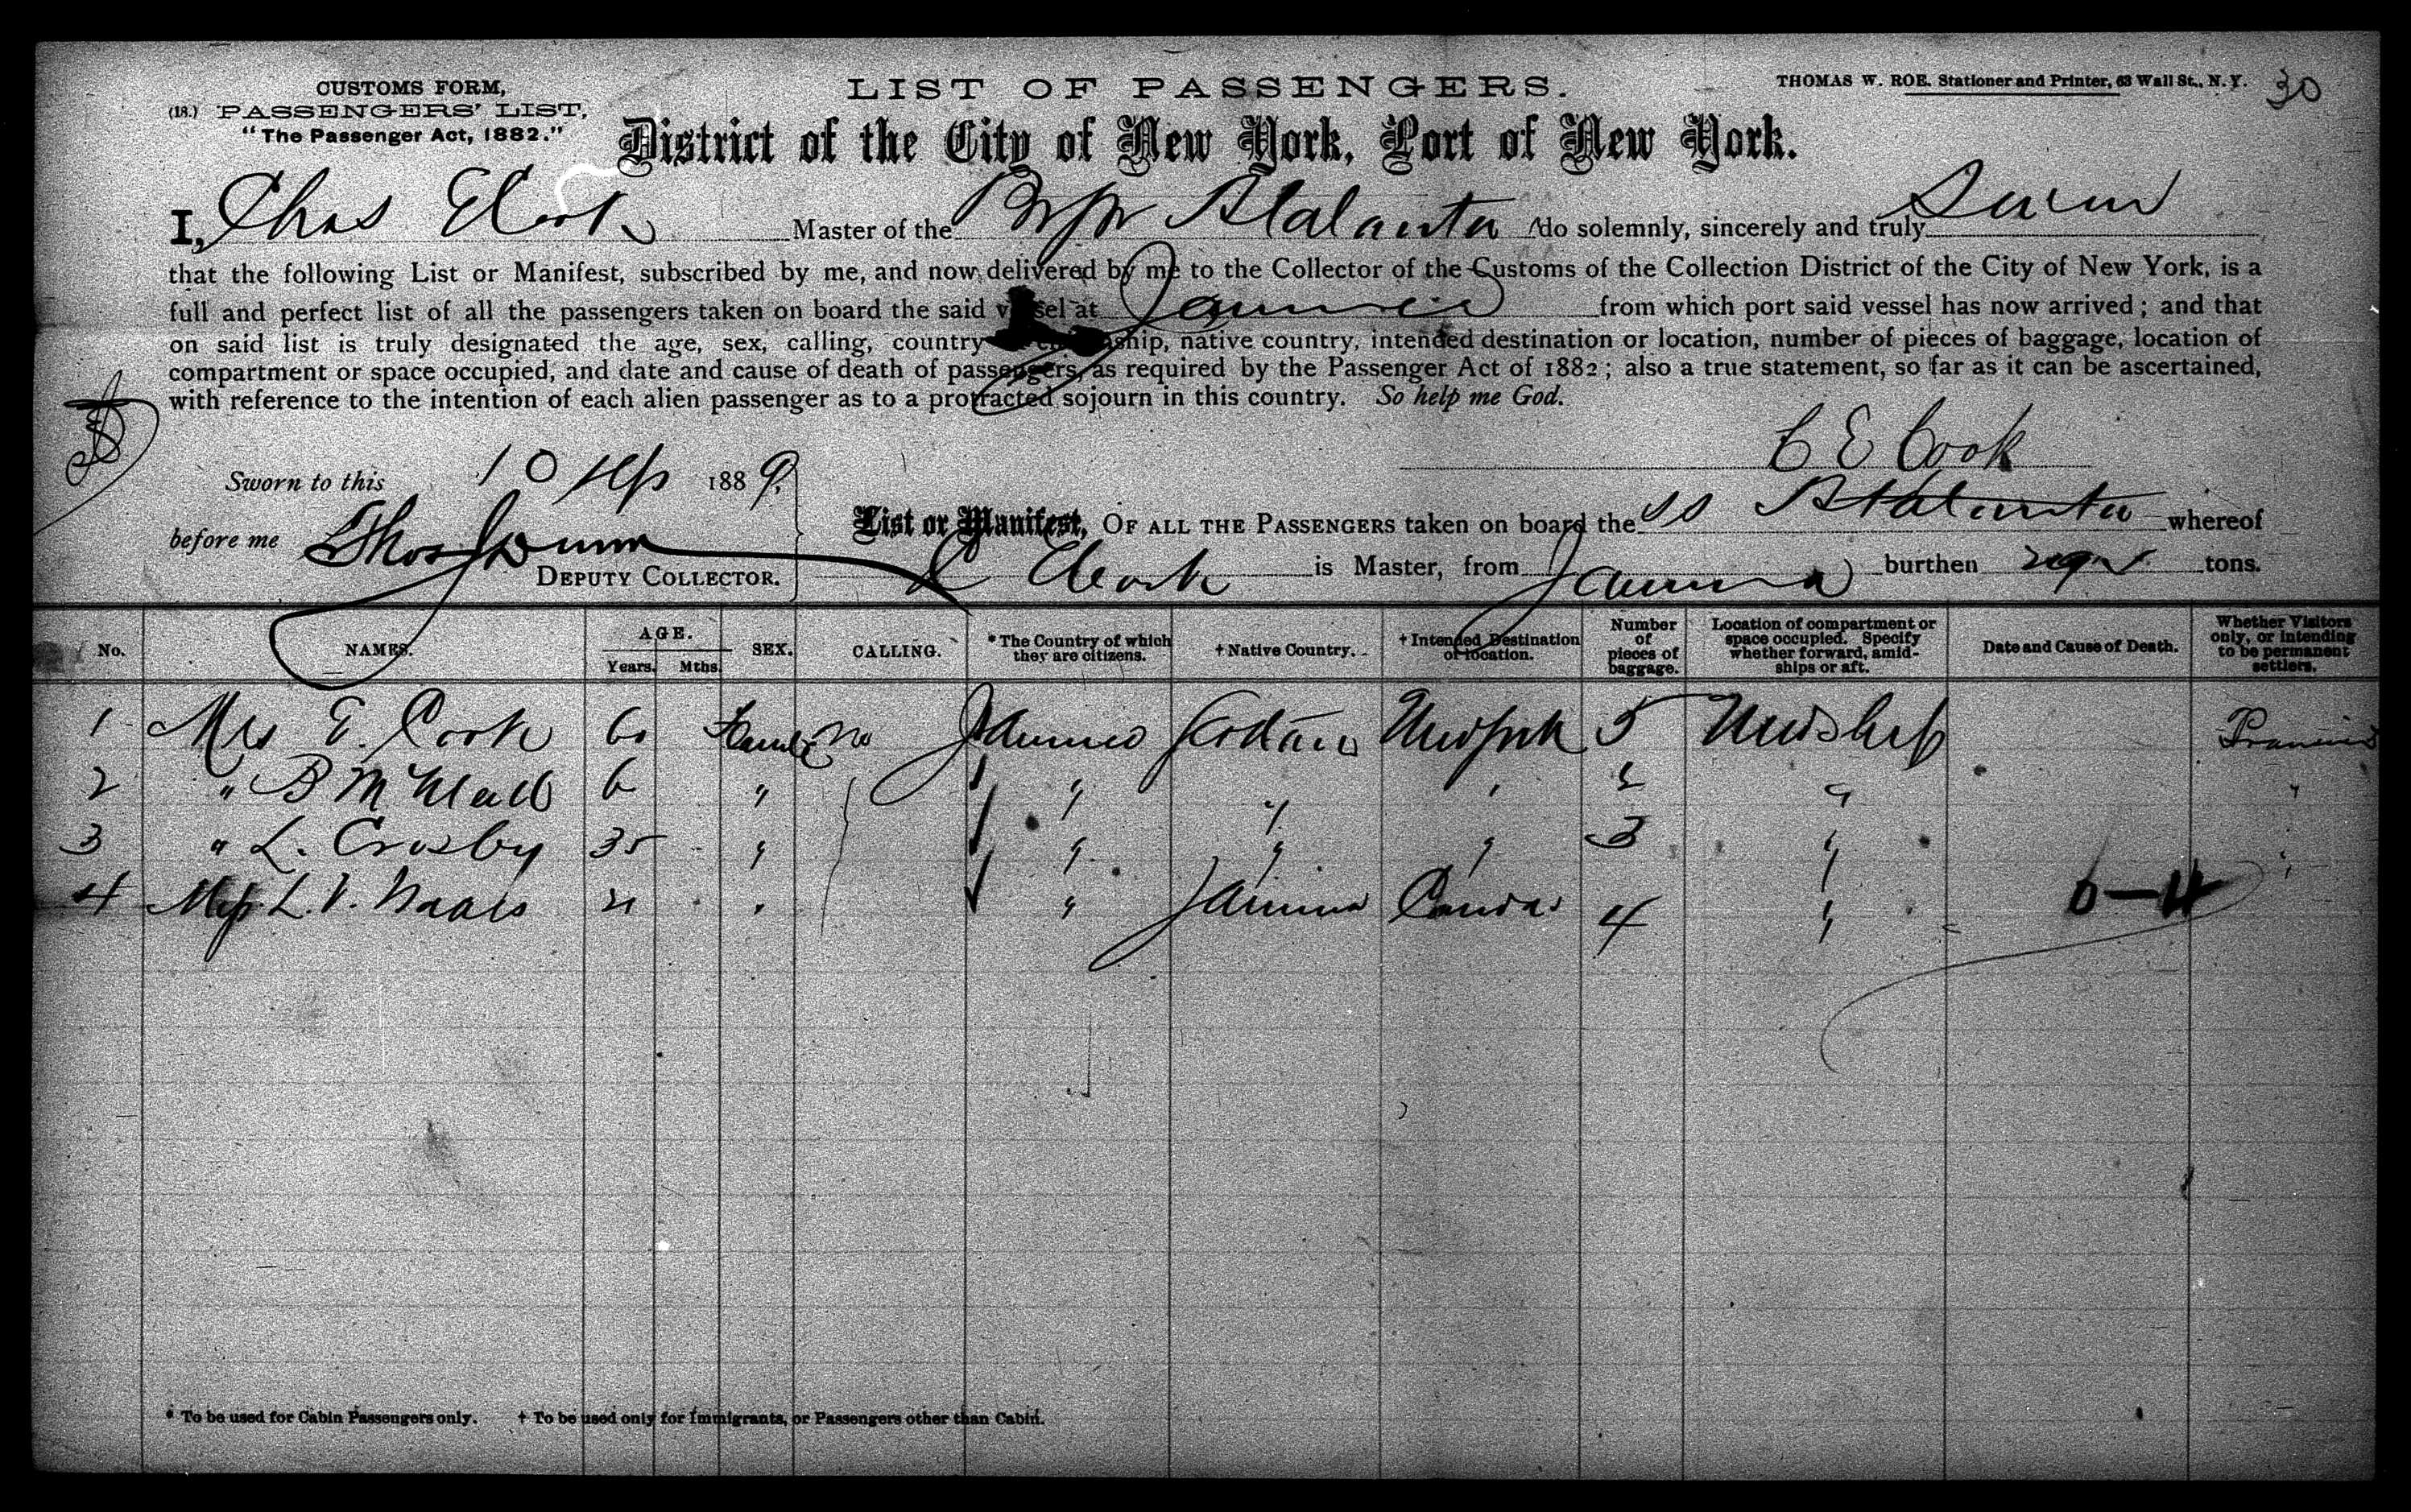 CUSTOMS FORM,
(18.) PASSENGERS' LIST,
"The Passenger Act, 1882."
LIST OF PASSENGERS.
THOMAS W. ROE. Stationer and Printer, 63 Wall St., N.Y.
30
District of the City of New York, Port of New York.
I, Chas E Cook Master of the Atalanta do solemnly, sincerely and truly
that the following List or Manifest, subscribed by me, and now delivered by me to the Collector of the Customs of the Collection District of the City of New York, is a
full and perfect list of all the passengers taken on board the said vessel at from which port said vessel has now arrived; and that
on said list is truly designated the age, sex, calling, country ship, native country, intended destination or location, number of pieces of baggage, location of
compartment or space occupied, and date and cause of death of passengers, as required by the Passenger Act of 1882; also a true statement, so far as it can be ascertained,
with reference to the intention of each alien passenger as to a protracted sojourn in this country. So help me God.
C E Cook
Sworn to this 10 Sep 1889.
before me Thos Dunn
DEPUTY COLLECTOR.
List or Manifest, OF ALL THE PASSENGERS taken on board the SS Atalanta whereof
C E Cook is Master, from burthen tons.
No. NAMES. AGE. Years. Mths. SEX. CALLING. * The Country of which they are citizens. † Native Country. † Intended Destination or location. Number of pieces of baggage. Location of compartment or space occupied. Specify whether forward, amidships or aft. Date and Cause of Death. Whether Visitors only, or intending to be permanent settlers.
1 Mrs E. Cook 60 Female No New York 5 Midship
2 " B M 6 " " " ' 2 "
3 " L. Crosby 35 " " " " 3 "
4 Miss L. V. 21 " " 4 "
6-4
* To be used for Cabin Passengers only. † To be used only for Immigrants, or Passengers other than Cabin.